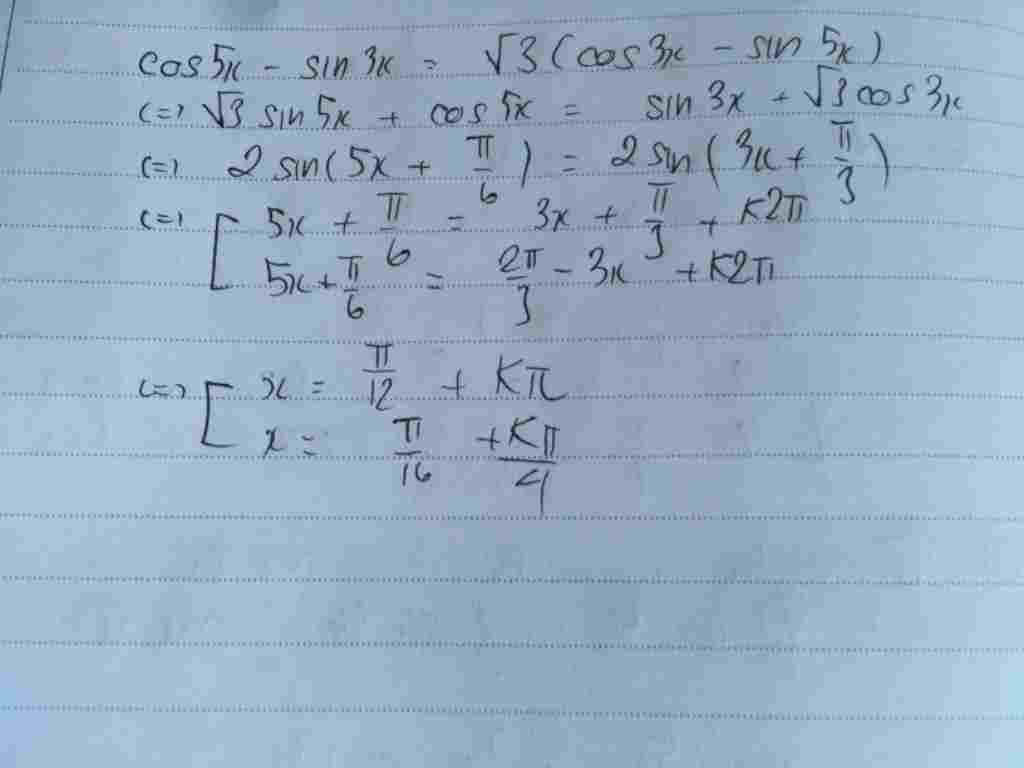 cos 5x - sin 3x = √3 (cos 3x - sin 5x)
(=) √3 sin 5x + cos 5x = sin 3x + √3 cos 3x
(=) 2 sin(5x + π/6) = 2 sin(3x + π/3)
(=) [ 5x + π/6 = 3x + π/3 + K2π
5x + π/6 = 2π/3 - 3x + K2π
(=) [ x = π/12 + Kπ
x = π/16 + Kπ/4